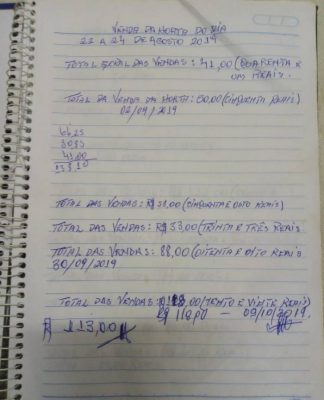 VENDA DA HORTA DO DIA
22 A 24 DE AGOSTO 2019
TOTAL GERAL DAS VENDAS: 41,00 (QUARENTA E
UM REAIS.
TOTAL DA VENDA DA HORTA: 50,00 (CINQUENTA REAIS)
02/09/2019
43,00
TOTAL DAS VENDAS: R$ 58,00 (CINQUENTA E OITO REAIS)
TOTAL DAS VENDAS: R$ 33,00 (TRINTA E TRÊS REAIS
TOTAL DAS VENDAS: 88,00 (OITENTA E OITO REAIS
30/09/2019
TOTAL DAS VENDAS: ,00 (CENTO E VINTE REAIS)
— 09/10/2019
R$ 113,00